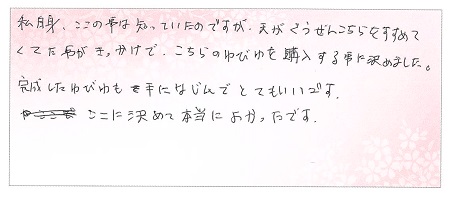 私自身、ここの事は知っていたのですが、夫がぐうぜんこちらをすすめて
くれた事がきっかけで、こちらのゆびわを購入する事に決めました。
完成したゆびわも手になじんでとてもいいです。
ここに決めて本当によかったです。